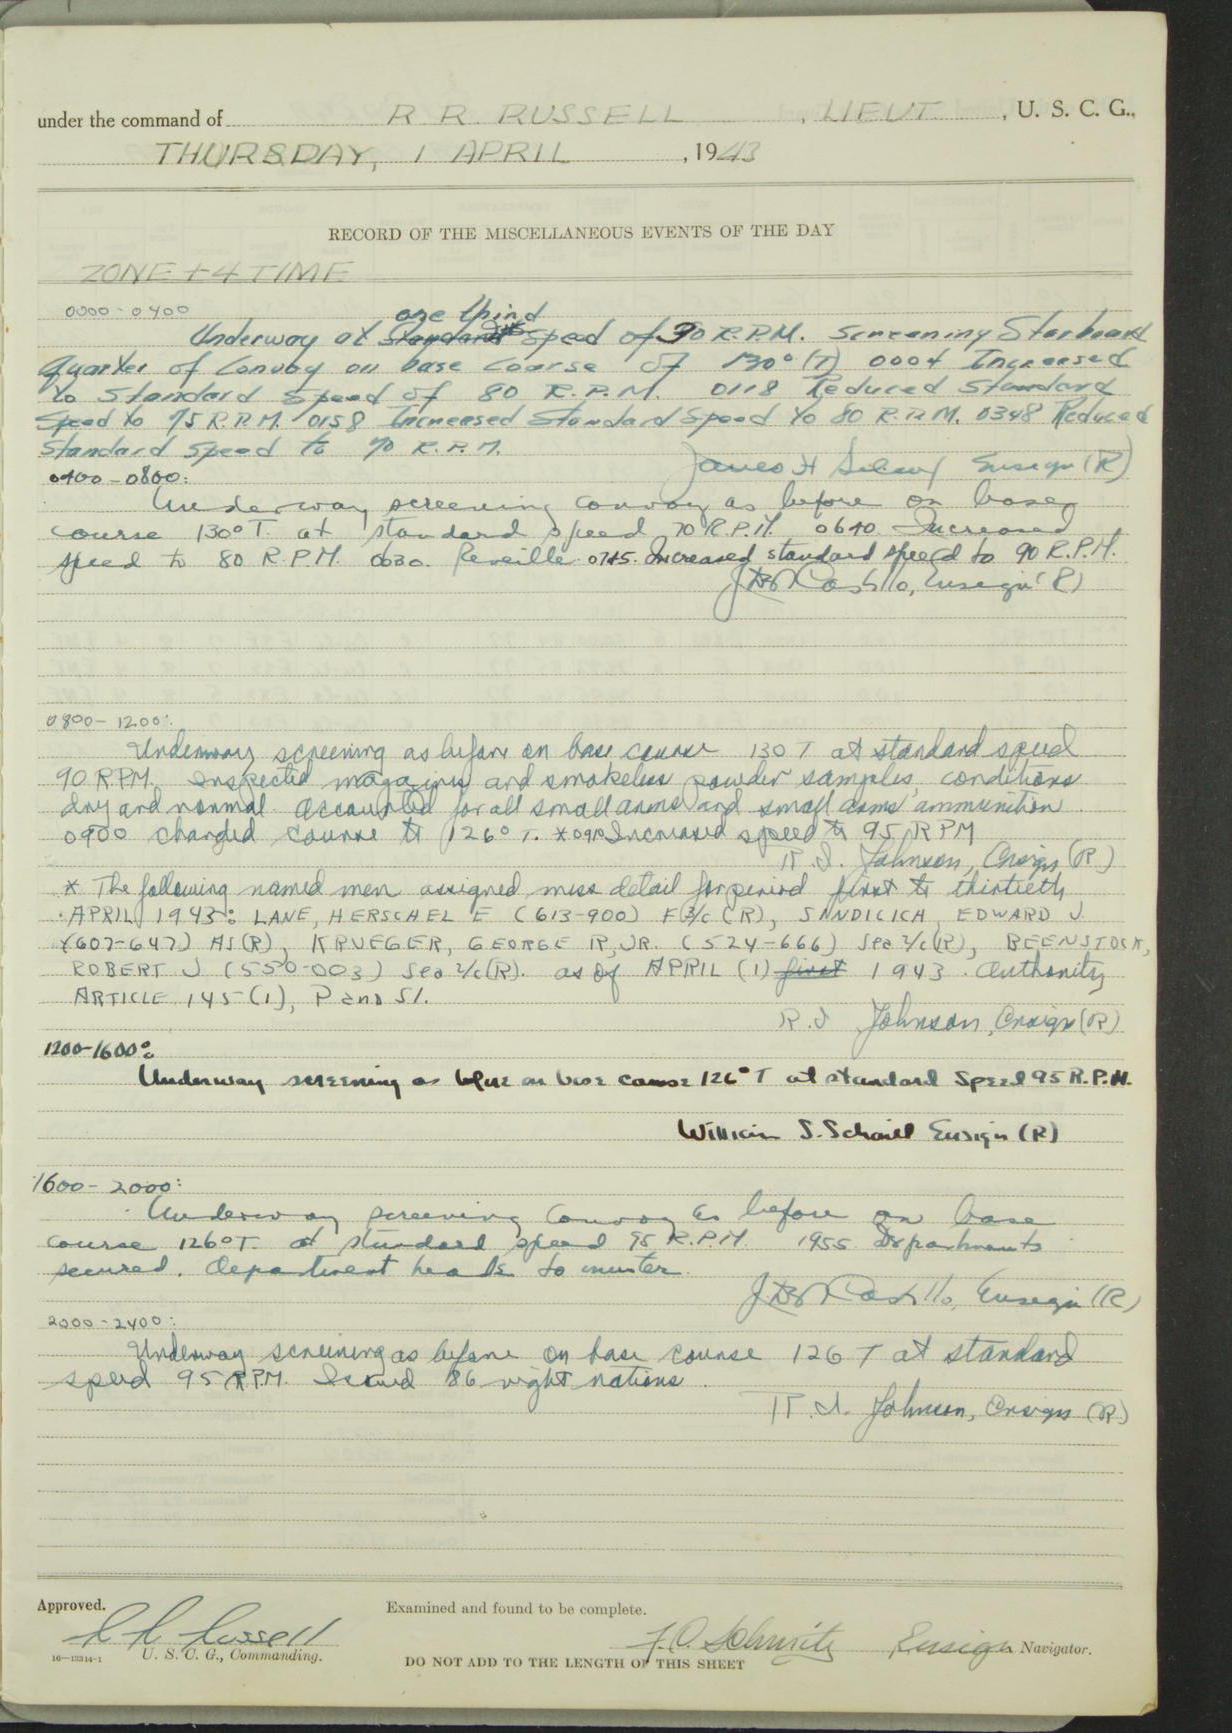 under the command of R R. RUSSELL, LIEUT, U. S. C. G.,
THURSDAY, 1 APRIL, 1943
RECORD OF THE MISCELLANEOUS EVENTS OF THE DAY
ZONE +4 TIME
0000-0400
one third
Underway at Standard speed of 90 R.P.M. Screening Starboard
Quarter of Convoy on base course of 130° (T) 0004 Increased
to Standard Speed of 80 R.P.M. 0118 Reduced Standard
Speed to 75 R.P.M. 0158 Increased Standard Speed to 80 R.P.M. 0348 Reduced
Standard Speed to 70 R.P.M.
James H Ensign (R)
0400-0800:
Underway screening convoy as before on base
course 130°T. at standard speed 70 R.P.M. 0640 Increased
speed to 80 R.P.M. 0630. Reveille. 0745. Increased standard speed to 90 R.P.M.
Ensign (R)
0800-1200:
Underway screening as before on base course 130 T at standard speed
90 RPM. Inspected magazines and smokeless powder samples, conditions
dry and normal. Accounted for all small arms and small arms ammunition
0900 changed course to 126° T. * Increased speed to 95 RPM
R. I. Johnson, Ensign (R)
* The following named men assigned mess detail for period first to thirtieth
APRIL 1943: LANE, HERSCHEL E (613-900) F3/c (R), SANDICICH, EDWARD J.
(607-647) AS(R), KRUEGER, GEORGE R, JR. (524-666) Sea 2/c(R), BEENSTOCK,
ROBERT J (550-003) Sea 2/c(R). as of APRIL (1) first 1943. Authority
ARTICLE 145(1), P and SI.
R. I Johnson, Ensign (R)
1200-1600:
Underway screening as before on base course 126° T at standard Speed 95 R.P.M.
William S. Ensign (R)
1600-2000:
Underway screening Convoy as before on base
course 126°T. at standard speed 95 R.P.M. 1955 Departments
secured. Department heads to muster.
Ensign (R)
2000-2400:
Underway screening as before on base course 126 T at standard
speed 95 RPM. Issued 86 night rations.
R. I. Johnson, Ensign (R)
Approved.
Examined and found to be complete.
R R Russell
U. S. C. G., Commanding.
Schmitz Ensign Navigator.
16—13314-1
DO NOT ADD TO THE LENGTH OF THIS SHEET